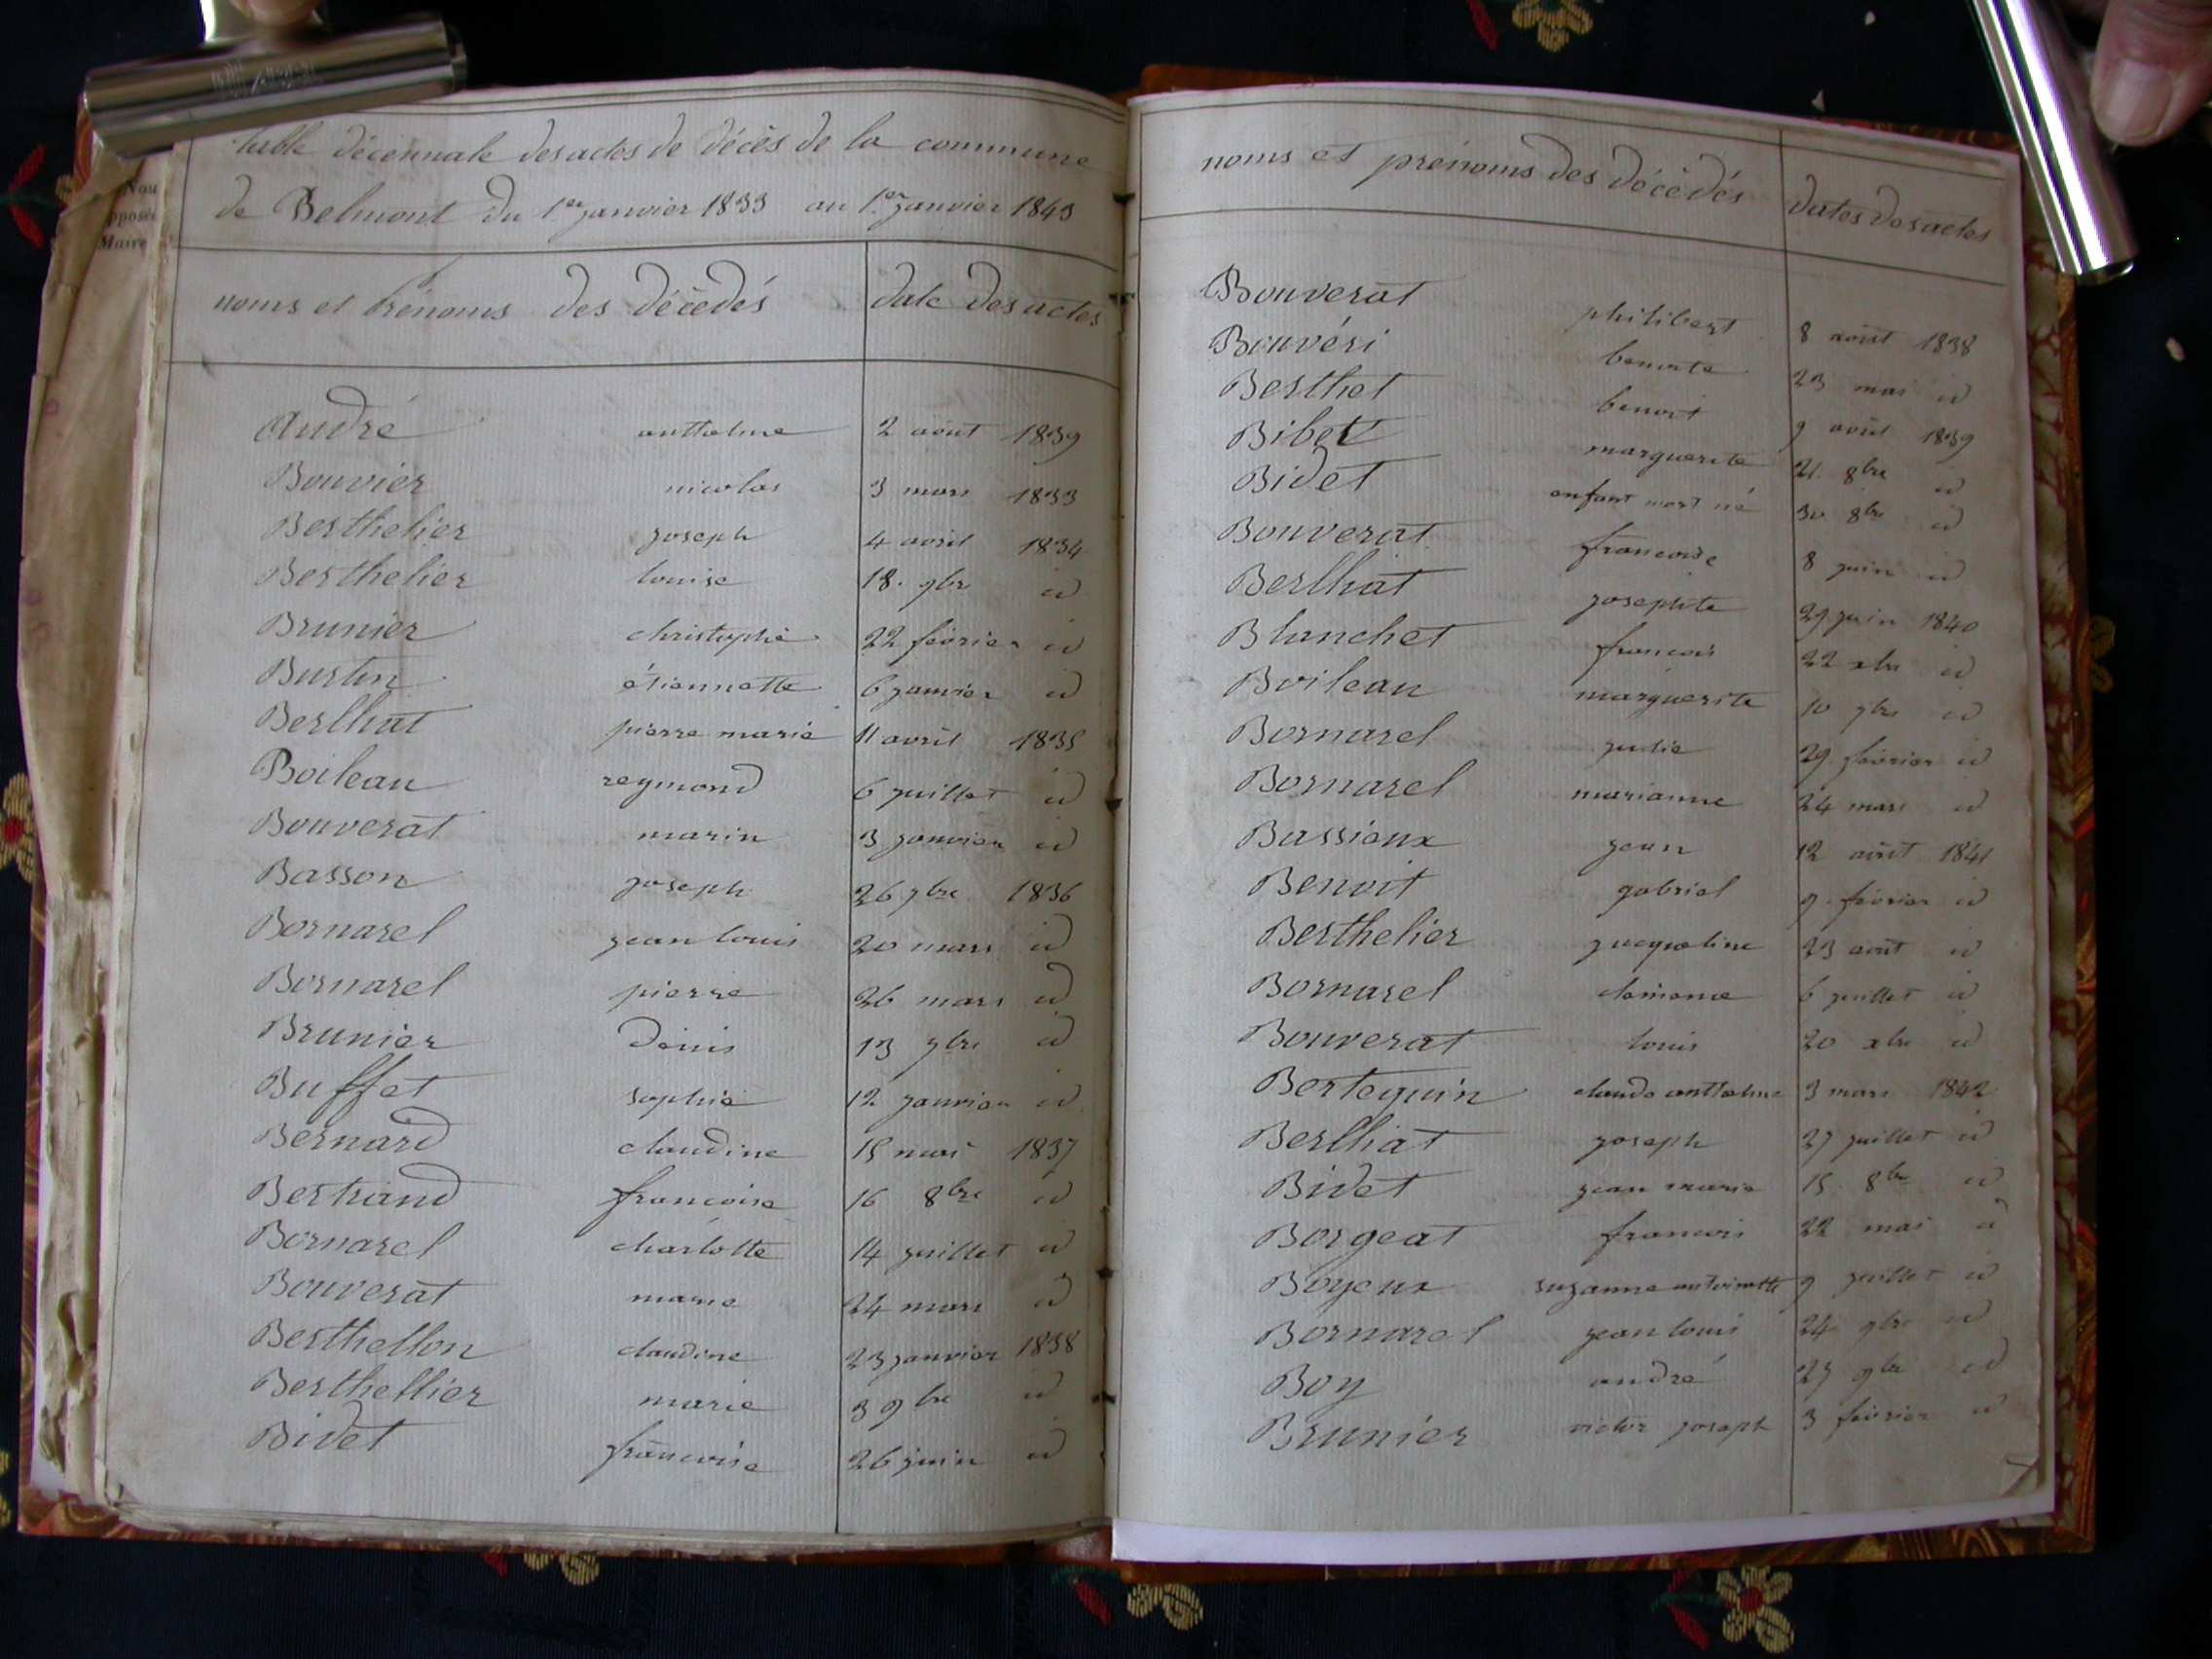 Nou
pposé
Maire
table décennale des actes de décès de la commune
de Belmont du 1er janvier 1833 au 1er janvier 1843
noms et Prénoms des décédés date des actes
André anthelme 2 aout 1839
Bouvier nicolas 3 mars 1833
Berthelier joseph 4 avril 1834
Berthelier louise 18. 9bre id
Brunier christophe 22 février id
Burtin étiennette 6 janvier id
Berlhat pierre marie 11 avril 1835
Boileau reymond 6 juillet id
Bouverat marin 3 janvier id
Basson joseph 26 7bre 1836
Bornarel jean louis 20 mars id
Bornarel pierre 26 mars id
Brunier Denis 13 7bre id
Buffet sophie 12 janvier id
Bernard claudine 15 mai 1837
Bertrand francoise 16 8bre id
Bornarel charlotte 14 juillet id
Bouverat marie 24 mars id
Berthellon claudine 23 janvier 1838
Berthellier marie 3 9bre id
Bidet francoise 26 juin id
noms et prénoms des décédés dates des actes
Bouverat philibert 8 août 1838
Bouvéri benoite 23 mai id
Berthet benoit 9 août 1839
Bibet marguerite 21 8bre id
Bidet enfant mort né 30 8bre id
Bouverat francoise 8 juin id
Berlhat josephte 29 juin 1840
Blanchet francois 22 xbre id
Boileau marguerite 10 7bre id
Bornarel julie 29 février id
Bornarel marianne 24 mars id
Bassieux jean 12 août 1841
Benoit gabriel 9 février id
Berthelier jacqueline 23 août id
Bornarel 6 juillet id
Bouverat louis 20 xbre id
Bertequin claude anthelme 3 mars 1842
Berlhat joseph 27 juillet id
Bidet jean marie 15 8bre id
Borgeat francois 22 mai id
Boyeux suzanne antoinette 9 juillet id
Bornarel jean louis 24 9bre id
Boy andré 27 9bre id
Brunier victor joseph 3 février id